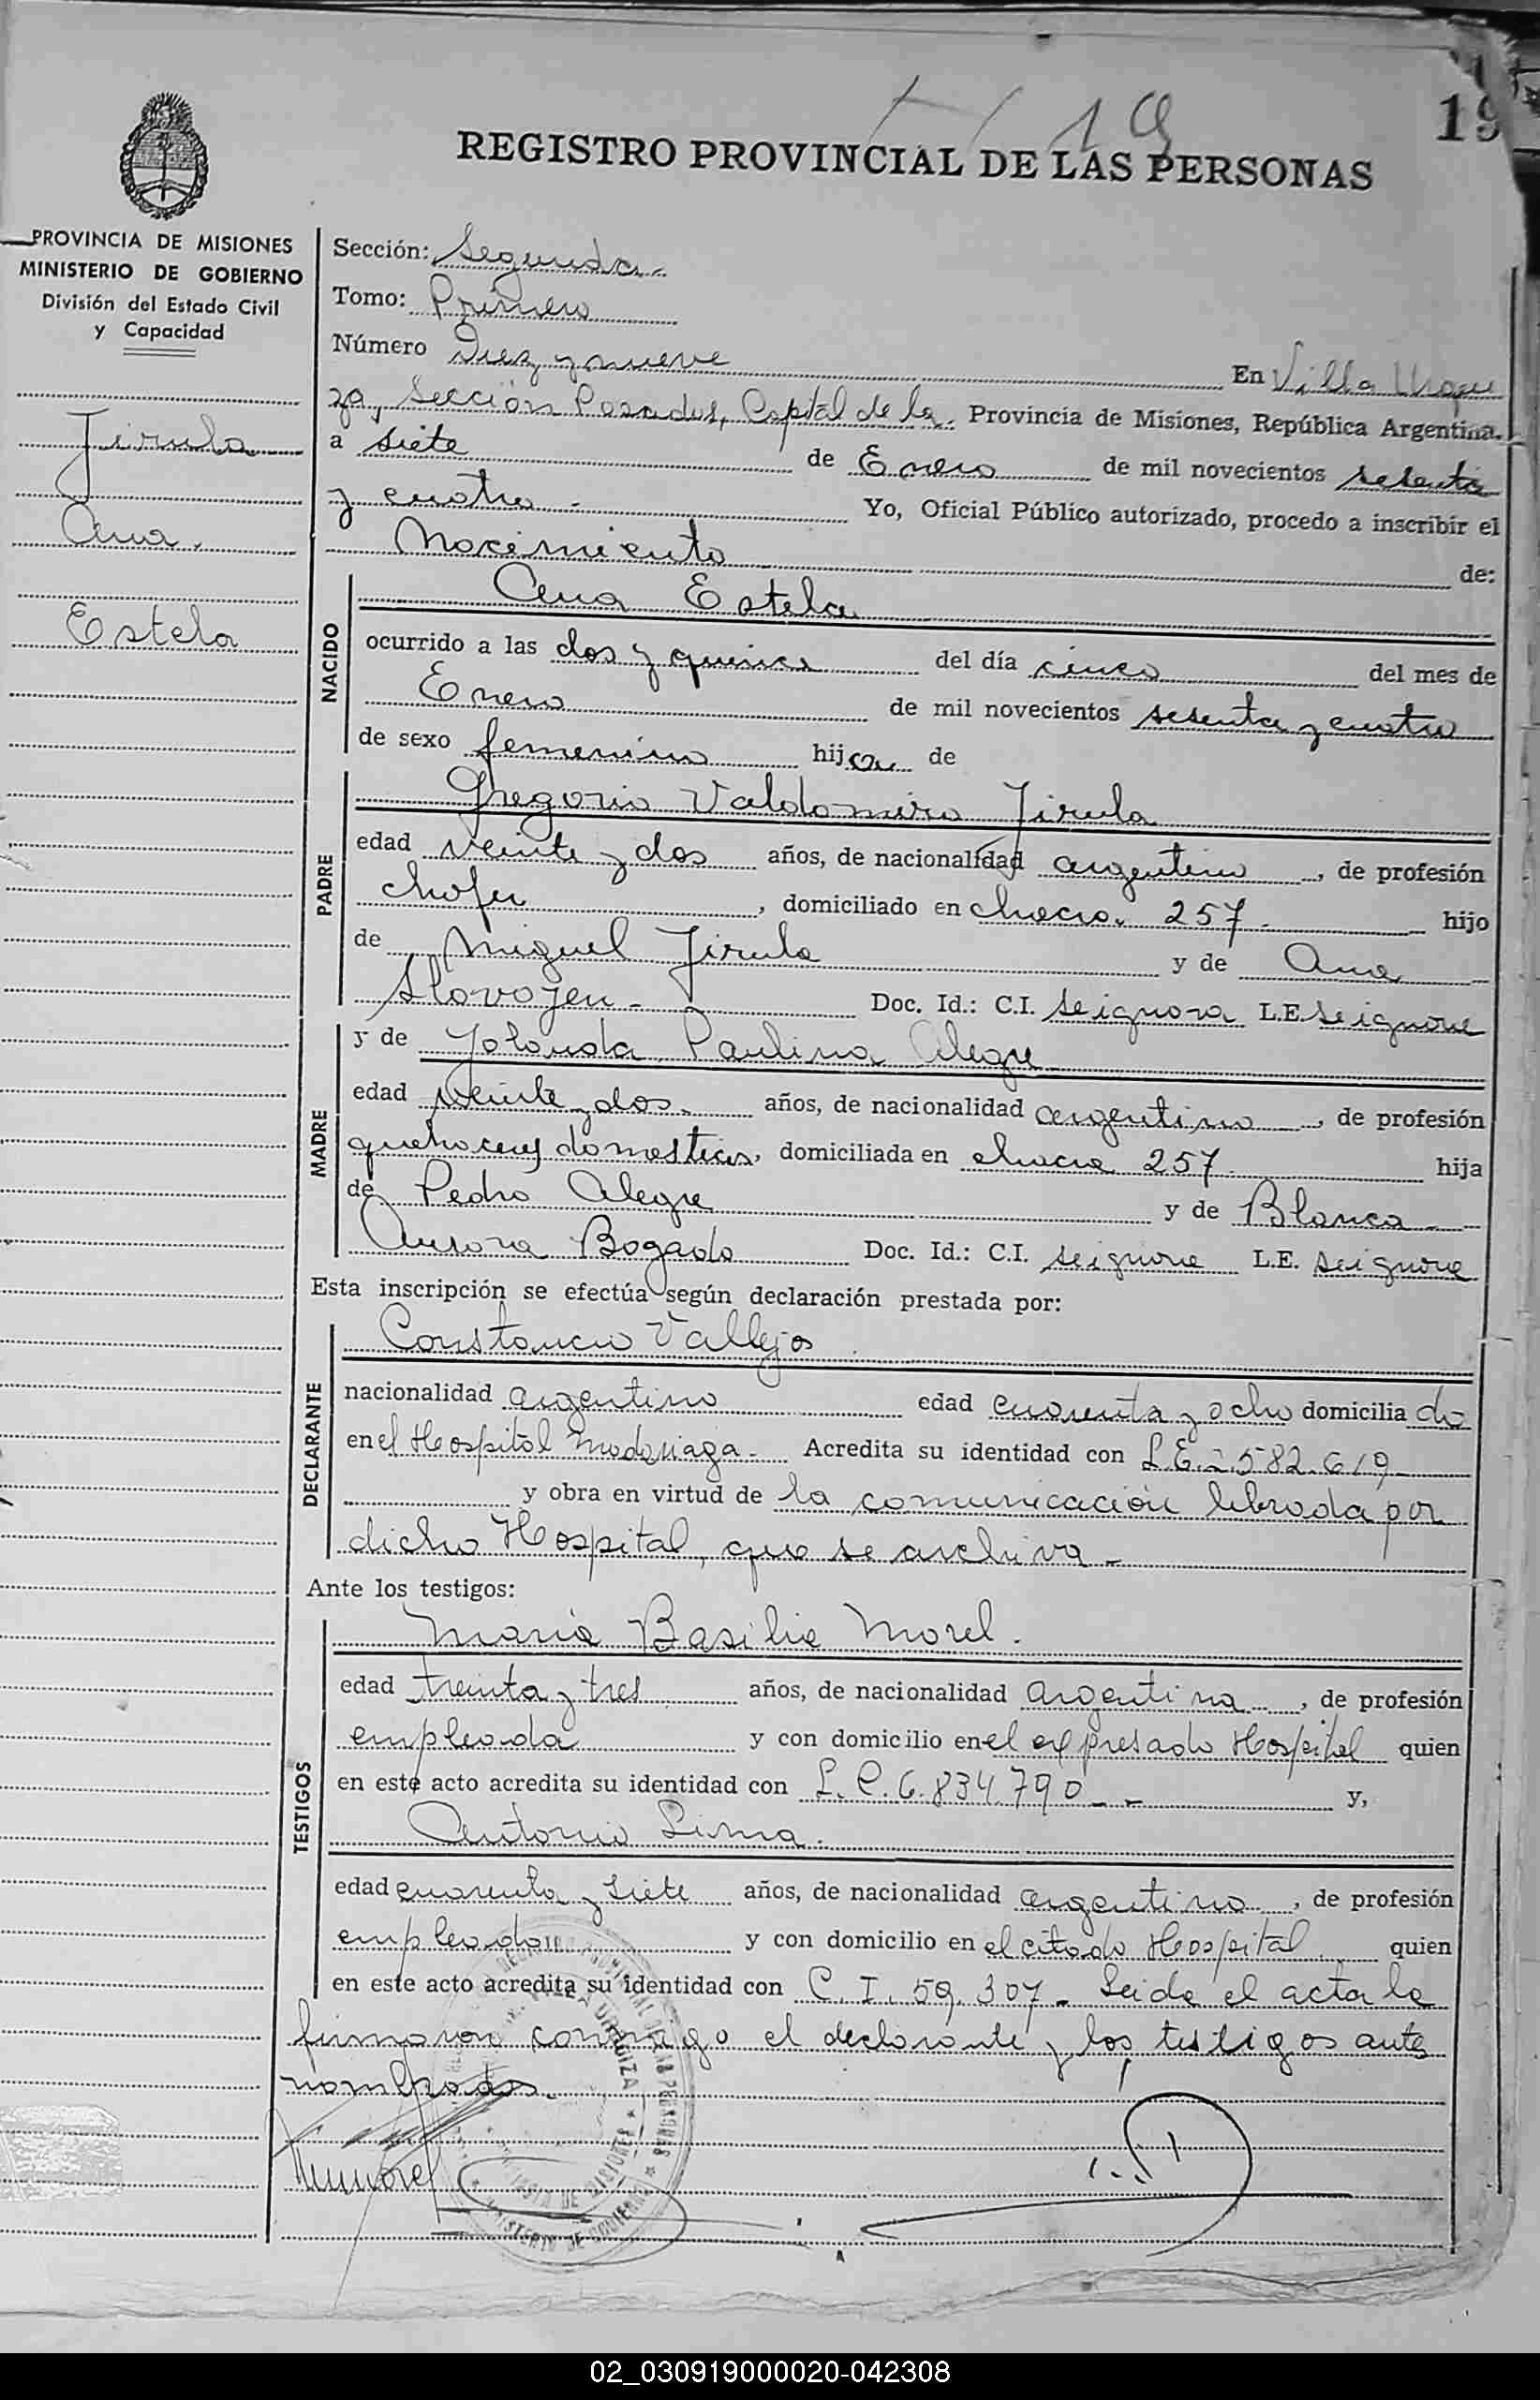 19
19
REGISTRO PROVINCIAL DE LAS PERSONAS
PROVINCIA DE MISIONES
MINISTERIO DE GOBIERNO
División del Estado Civil
y Capacidad
Jirula
Ana.
Estela
Sección: Segunda.-
Tomo: Primero
Número Diez y nueve En Villa Urqui
za, Sección Posadas, Capital de la. Provincia de Misiones, República Argentina.
a siete de Enero de mil novecientos sesenta
y cuatro.- Yo, Oficial Público autorizado, procedo a inscribir el
Nacimiento de:
NACIDO
Ana Estela
ocurrido a las dos y quince del día cinco del mes de
Enero de mil novecientos sesenta y cuatro
de sexo femenino hija de
PADRE
Gregorio Valdomiro Jirula
edad veinte y dos años, de nacionalidad argentino, de profesión
chofer, domiciliado en chacra. 257.- hijo
de Miguel Jirula y de Ana
Doc. Id.: C.I. se ignora L.E. se ignora
MADRE
y de Yolanda Paulina Alegre
edad veinte y dos. años, de nacionalidad argentina, de profesión
quehaceres domesticos, domiciliada en chacra 257 hija
de Pedro Alegre y de Blanca
Aurora Bogado Doc. Id.: C.I. se ignora L.E. se ignora
Esta inscripción se efectúa según declaración prestada por:
DECLARANTE
Constancio Vallejos
nacionalidad argentino edad cuarenta y ocho domicilia do
en el Hospital Madariaga.- Acredita su identidad con L.E. 2.582.619
y obra en virtud de la comunicación librada por
dicho Hospital, que se archiva.-
Ante los testigos:
TESTIGOS
María Basilia Morel.
edad treinta y tres años, de nacionalidad argentina, de profesión
empleada y con domicilio en el expresado Hospital quien
en este acto acredita su identidad con L.C. 6.834.790 -- y,
Antonio Lima.
edad cuarenta y siete años, de nacionalidad argentino, de profesión
empleado y con domicilio en el citado Hospital quien
en este acto acredita su identidad con C.I. 59.307.- Leida el acta la
firmaron conmigo el declarante y los testigos ante
nombrados.
02_030919000020-042308